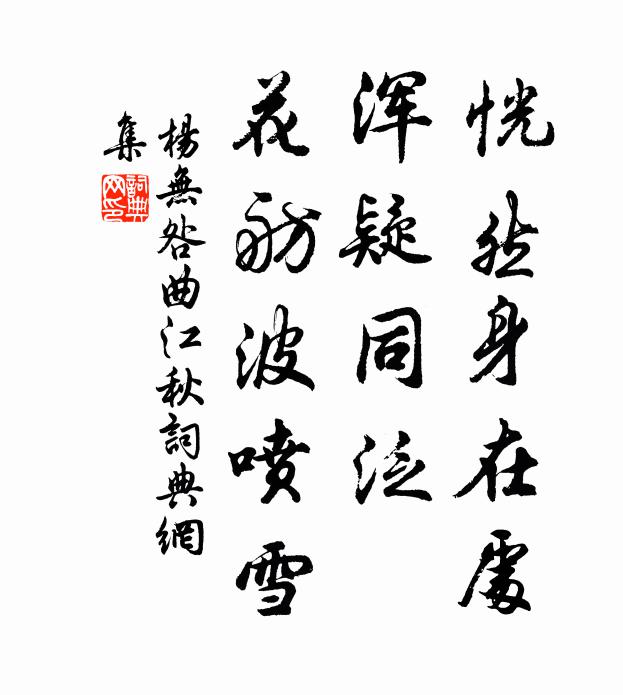 恍然身在處
渾疑同泛
花舫波噴雪
楊無咎曲江秋詞典網
集
詞典網印